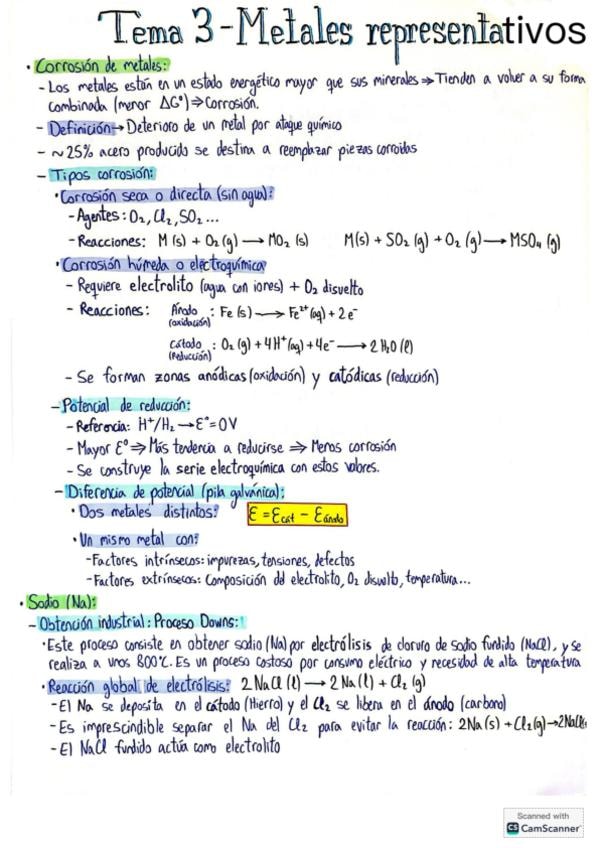 Tema 3 - Metales representativos
• Corrosión de metales:
- Los metales están en un estado energético mayor que sus minerales ⇒ Tienden a volver a su forma
combinada (menor ΔG°) ⇒ Corrosión.
- Definición → Deterioro de un metal por ataque químico
- ~25% acero producido se destina a reemplazar piezas corroídas
- Tipos corrosión:
• Corrosión seca o directa (sin agua):
- Agentes: O₂, Cl₂, SO₂ ...
- Reacciones: M (s) + O₂ (g) → MO₂ (s) M(s) + SO₂ (g) + O₂ (g) → MSO₄ (g)
• Corrosión húmeda o electroquímica
- Requiere electrolito (agua con iones) + O₂ disuelto
- Reacciones: Ánodo (oxidación): Fe (s) → Fe²⁺ (aq) + 2 e⁻
Cátodo (Reducción): O₂ (g) + 4 H⁺ (aq) + 4e⁻ → 2 H₂O (l)
- Se forman zonas anódicas (oxidación) y catódicas (reducción)
- Potencial de reducción:
- Referencia: H⁺/H₂ → E°= 0 V
- Mayor E° ⇒ Más tendencia a reducirse ⇒ Menos corrosión
- Se construye la serie electroquímica con estos valores.
- Diferencia de potencial (pila galvánica):
• Dos metales distintos: E = Ecát - Eánodo
• Un mismo metal con:
- Factores intrínsecos: impurezas, tensiones, defectos
- Factores extrínsecos: Composición del electrolito, O₂ disuelto, temperatura...
• Sodio (Na):
- Obtención industrial: Proceso Downs:
• Este proceso consiste en obtener sodio (Na) por electrólisis de cloruro de sodio fundido (NaCl), y se
realiza a unos 800°C. Es un proceso costoso por consumo eléctrico y necesidad de alta temperatura
• Reacción global de electrólisis: 2 NaCl (l) → 2 Na (l) + Cl₂ (g)
- El Na se deposita en el cátodo (Hierro) y el Cl₂ se libera en el ánodo (carbono)
- Es imprescindible separar el Na del Cl₂ para evitar la reacción: 2Na (s) + Cl₂ (g) → 2NaCl(s
- El NaCl fundido actúa como electrolito
Scanned with
CS CamScanner